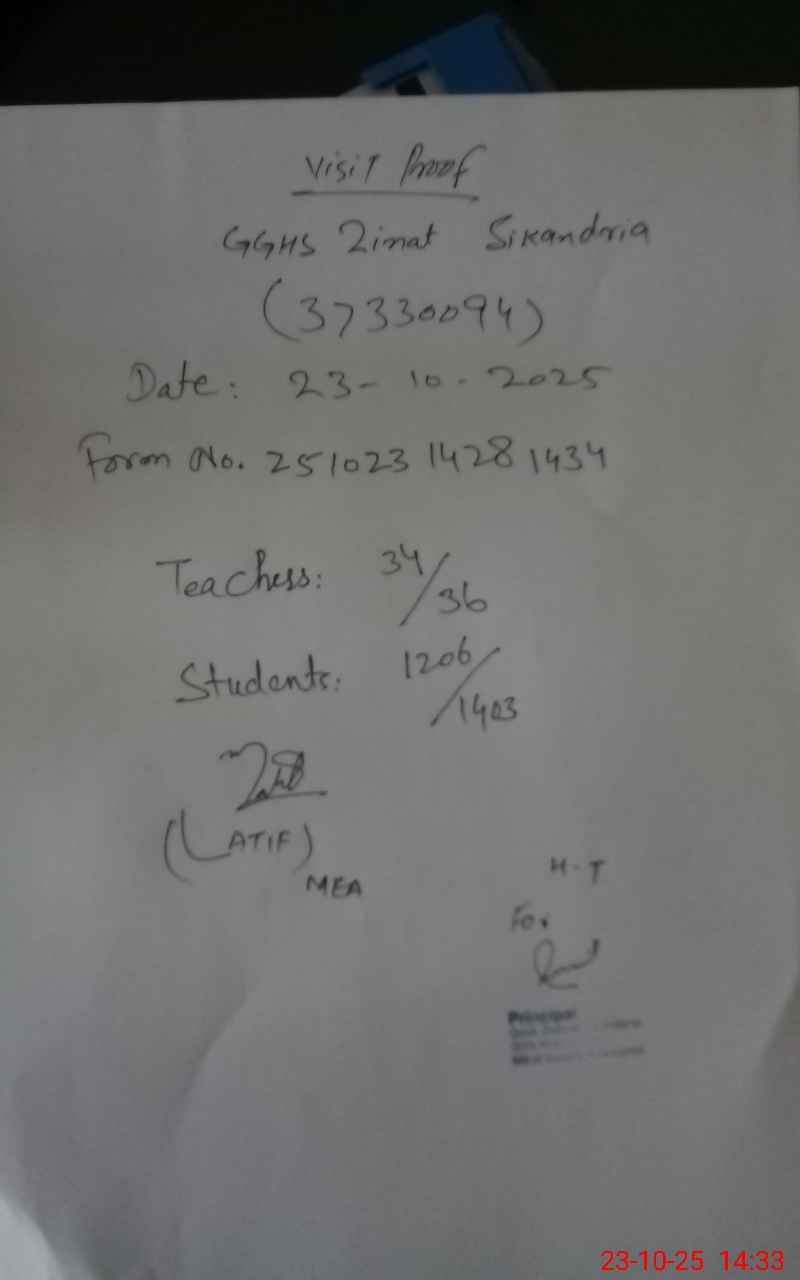 Visit Proof
GGHS Zinat Sikandria
(37330094)
Date: 23-10-2025
Form No. 251023 14281434
Teachers: 34/36
Students: 1206/1403
(LATIF)
MEA
H-T
For
Principal
23-10-25 14:33